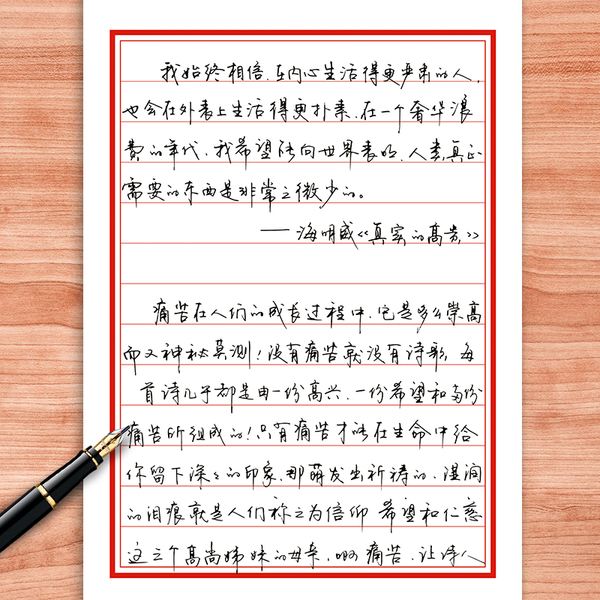 我始终相信,在内心生活得更严肃的人,
也会在外表上生活得更朴素.在一个奢华浪
费的年代,我希望能向世界表明,人类真正
需要的东西是非常之微少的。
——海明威《真实的高贵》
痛苦在人们的成长过程中,它是多么崇高
而又神秘莫测!没有痛苦就没有诗歌,每
首诗几乎都是由一份高兴、一份希望和两份
痛苦所组成的!只有痛苦才能在生命中给
你留下深深的印象,那萌发出祈祷的、湿润
的泪痕就是人们称之为信仰 希望和仁慈
这三个高尚姊妹的母亲,啊 痛苦,让诗人